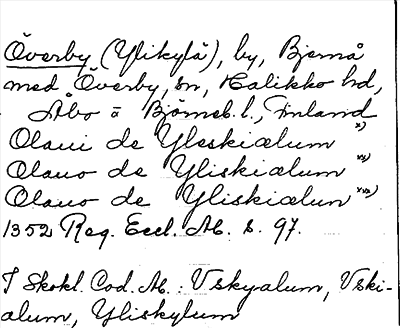 Överby (Ylikylä), by, Bjernå
med Överby, sn, Halikko hd,
Åbo o Björneb. l., Finland
Olaui de Yleskiælum x)
Olauo de Yliskiælum xx)
Olauo de Yliskiælun xxx)
1352 Reg. Eccl. Ab. s. 97.
I Skokl. Cod. Ab.: Vskyalum, Vski-
alum, Yliskylum